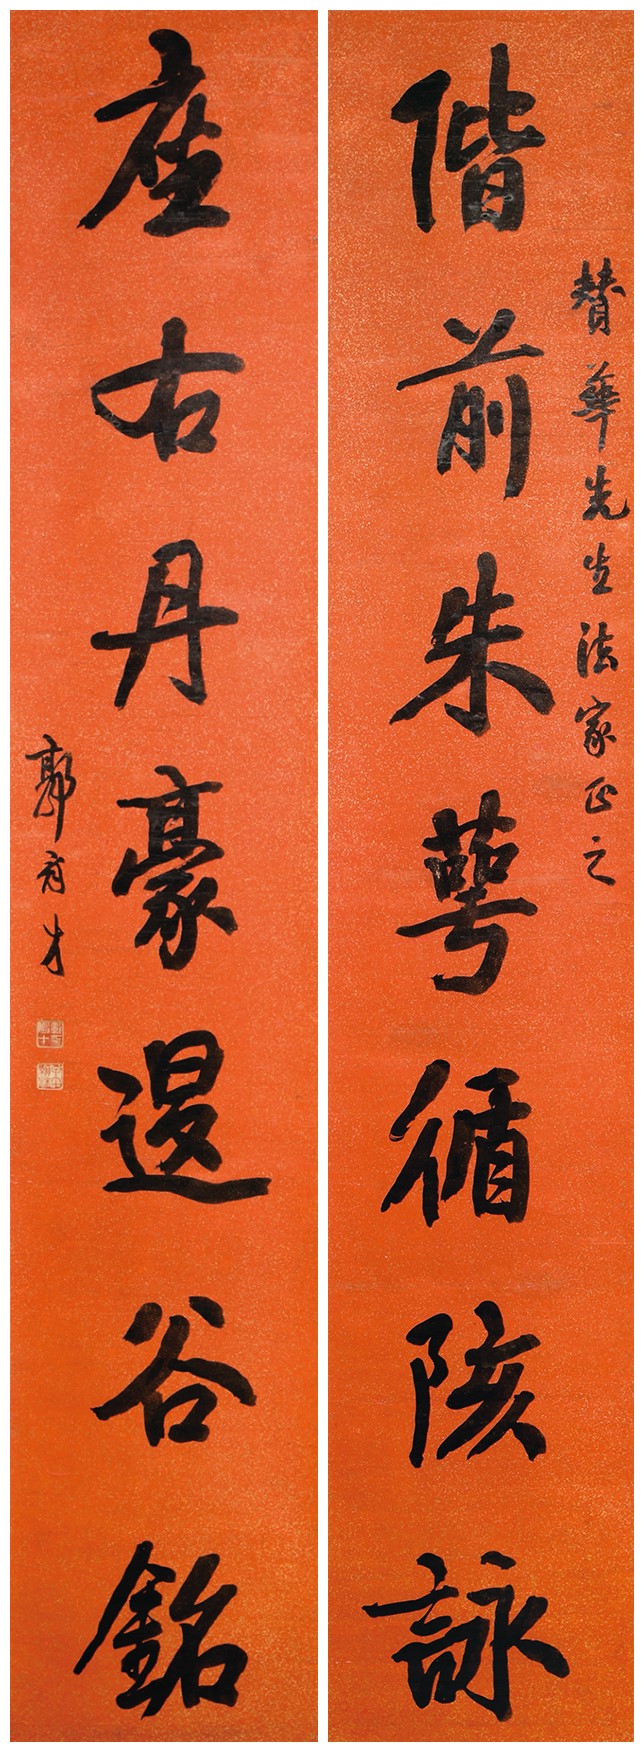 贊華先生法家正之
偕前朱萼循陔詠
座右丹豪退谷銘
郭育才